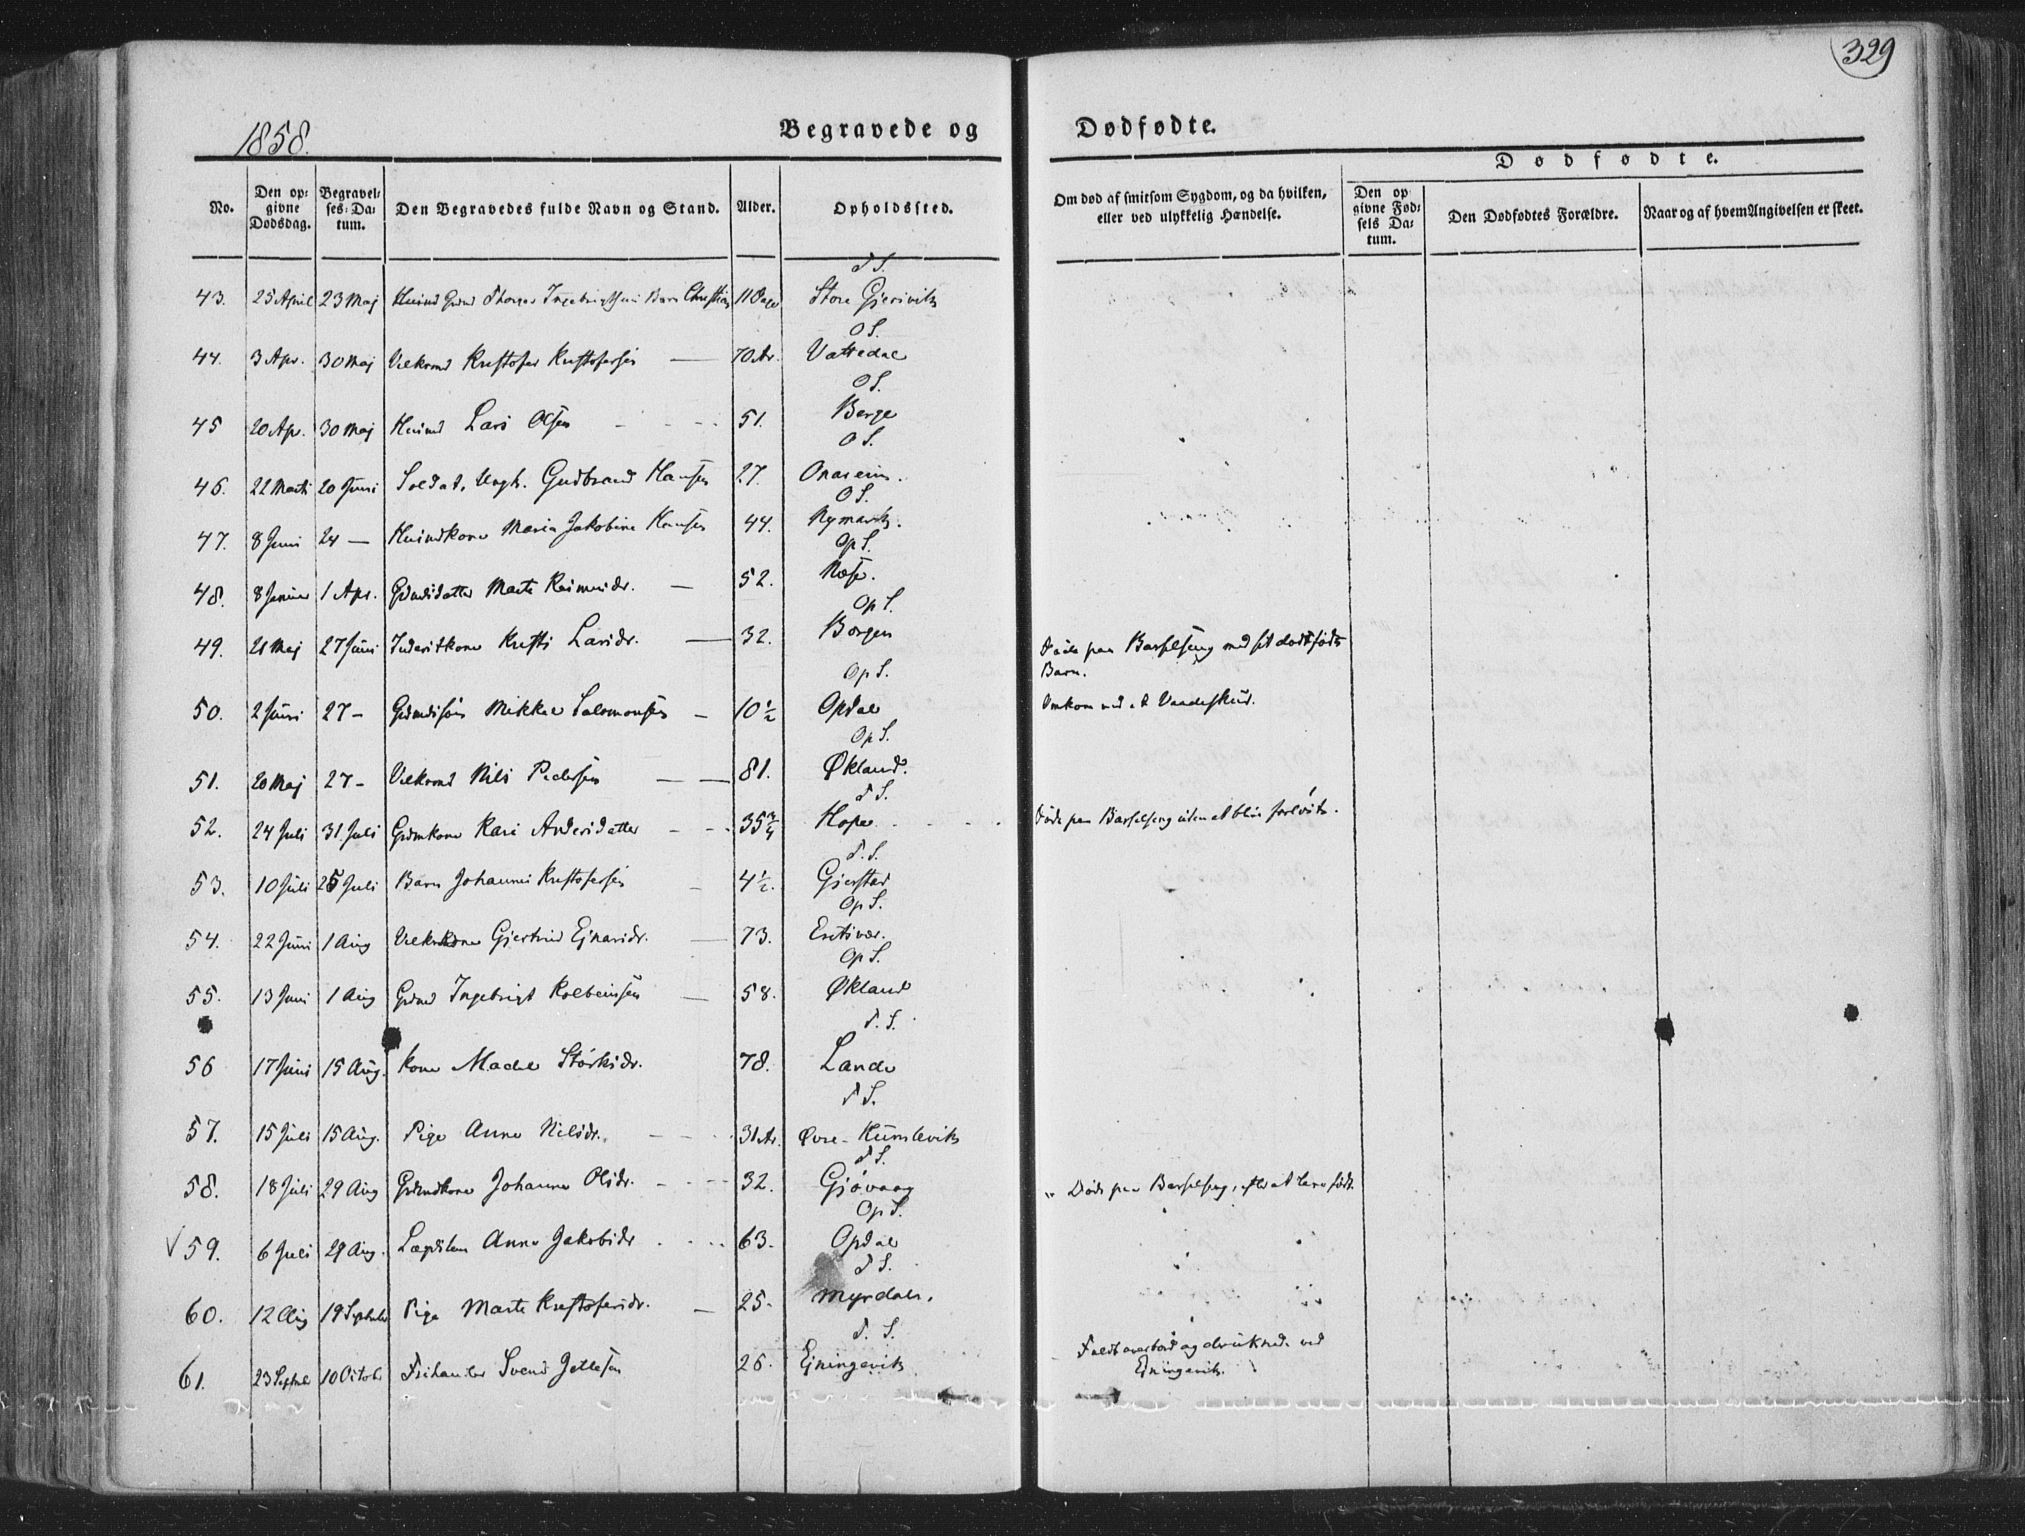 329
1858.
Begravede og Dødfødte.
Dødfødte.
No.
Den opgivne Dødsdag.
Begravelses-Datum.
Den Begravedes fulde Navn og Stand.
Alder.
Opholdssted.
Om død af smitsom Sygdom, og da hvilken, eller ved ulykkelig Hændelse.
Den opgivne Fødsels Datum.
Den Dødfødtes Forældre.
Naar og af hvem Angivelsen er skeet.
43. 25 April 23 Maj Huusmd Barn Christian 11 Dage Store Gjersvik
O S.
44. 3 Apr. 30 Maj Kristofer Kristofersen — 70 Ar. Vattedal
O S.
45 20 Ap. 30 Maj Lars Olsen 51. Berge
O S.
46. 22 Marti 20 Juni Soldat, Ungk. Gudbrand Hansen 27. Onarem.
O S.
47. 8 Juni 24 — Huusmdkone Maria Jakobine Hansen 44. Nymark.
Op S.
48. 8 Januar 1 Apr. Gdmdsdatter Marte Rasmusdr. — 52. Næse.
Op S.
49. 21 Maj 27 Juni Kristi Larsdr. — 32. Borgen Døde paa Barselseng med sit dødfødte Barn.
Op S.
50. 2 Juni 27 – Gdmdssøn Mikkel Salomonsen – 10 ½ Opdal Omkom ved et Vaadeskud.
Op S.
51. 20 Maj 27 – Nils Pedersen — 81. Økland.
T S.
52. 24 Juli 31 Juli Gdmkone Kari Andersdatter 35 3/4 Hope Døde paa Barselseng uden at blive forløst.
T. S.
53. 10 Juli 25 Juli Barn Johannes Kristofersen – 4 ½. Gjerstad
Op S.
54. 22 Juni 1 Aug Gjertrud Ejnarsdr. — 73. Eritsvær.
Op S.
55. 13 Juni 1 Aug Gdmd Ingebrigt Kolbeinsen — 58. Økland
T. S.
56 17 Juni 15 Aug. Kone Madel Størksdr. 78. Lande
T S.
57. 15 Juli 15 Aug. Pige Anne Nilsdr. 31 Ar. Øvre-Humlevik
T S.
58. 18 Juli 29 Aug Gdmdkone Johanne Olsdr. 32. Gjøvaag Døde paa Barselseng, efter at have født.
Op S.
59. 6 Juli 29 Aug. Lægdslem Anne Jakobsdr 63. Opdal
T S.
60. 12 Aug 19 September Pige Marte Kristofersdr. — 25. Myrdal.
T. S.
61. 23 Septemb 10 Octob Svend Jetlesen 26. Ejningevik Faldt overbord og druknede ved Ejningevik.